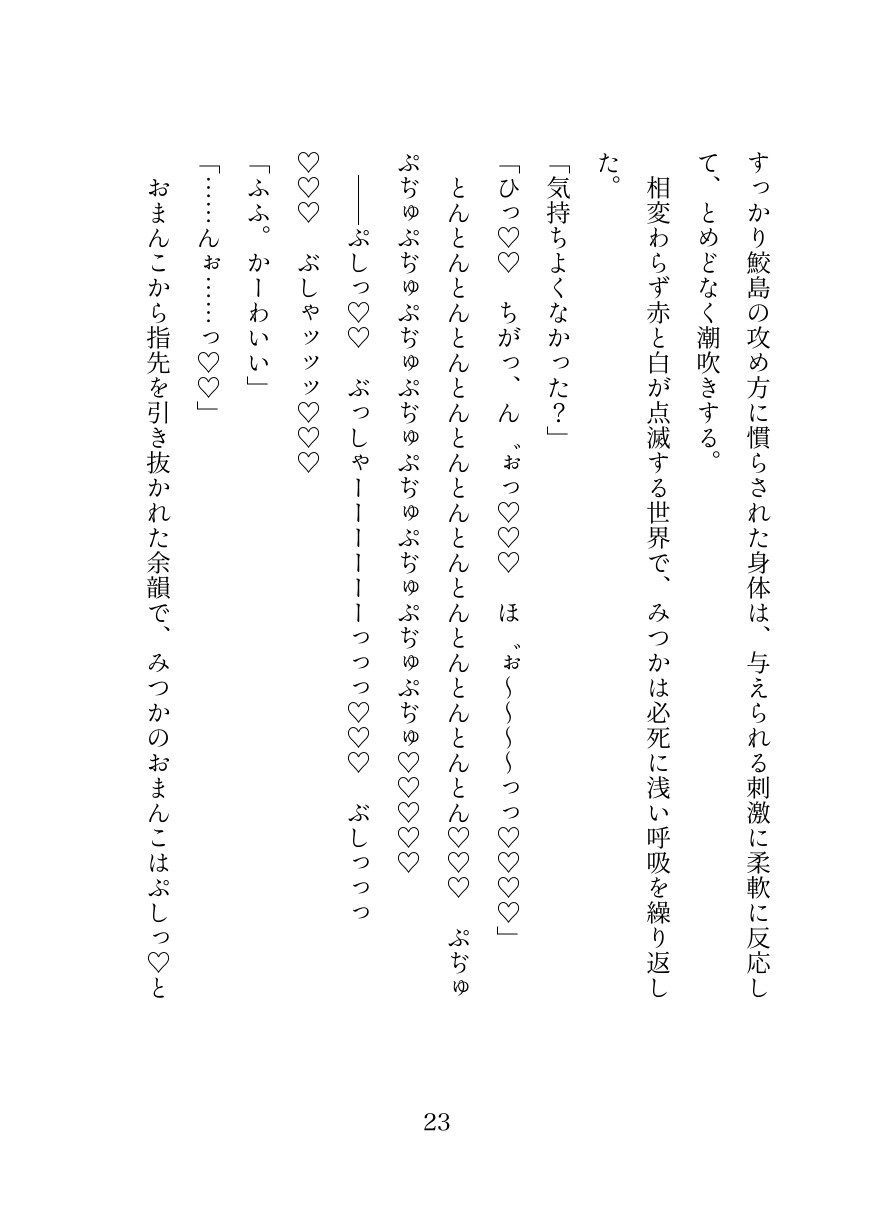 すっかり鮫島の攻め方に慣らされた身体は、与えられる刺激に柔軟に反応し
て、とめどなく潮吹きする。
　相変わらず赤と白が点滅する世界で、みつかは必死に浅い呼吸を繰り返し
た。
「気持ちよくなかった？」
「ひっ♡♡　ちがっ、ん゛ぉっ♡♡♡　ほ゛ぉ～～～～っっ♡♡♡♡」
　とんとんとんとんとんとんとんとんとんとんとんとんとん♡♡♡　ぷぢゅ
ぷぢゅぷぢゅぷぢゅぷぢゅぷぢゅぷぢゅぷぢゅぷぢゅ♡♡♡♡♡
　――ぷしっ♡♡　ぶっしゃーーーーーーっっっ♡♡♡　ぶしっっっ
♡♡♡　ぶしゃッッッ♡♡♡
「ふふ。かーわいい」
「……んぉ……っ♡♡」
　おまんこから指先を引き抜かれた余韻で、みつかのおまんこはぷしっ♡と
23